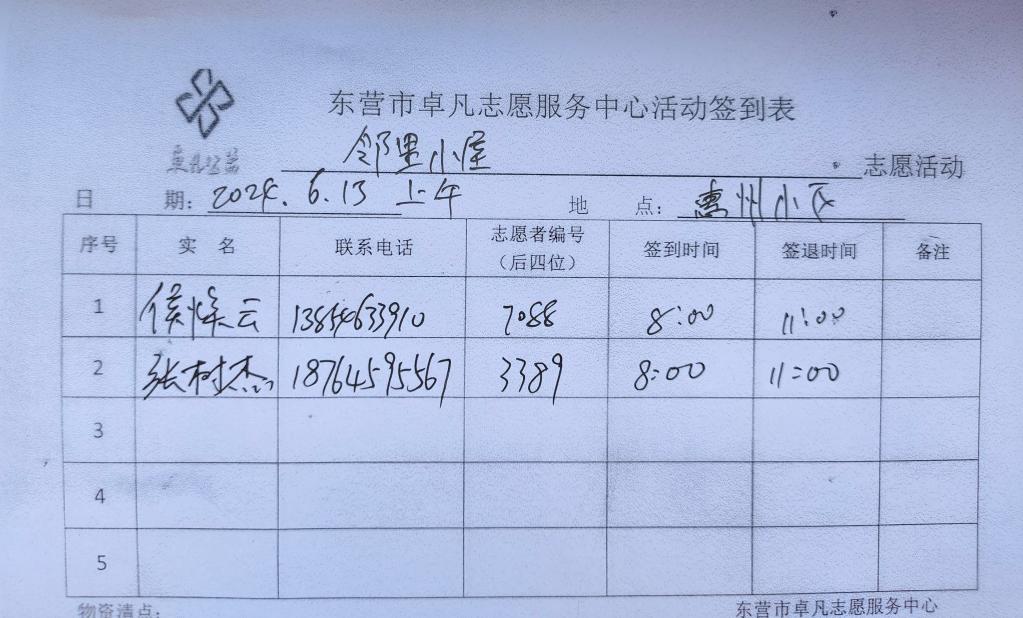 东营市卓凡志愿服务中心活动签到表
卓凡公益
邻里小屋 志愿活动
日 期：2024.6.13 上午 地 点：惠州小区
序号 实 名 联系电话 志愿者编号（后四位） 签到时间 签退时间 备注
1 侯焕云 13854633910 7088 8:00 11:00
2 张树杰 18764595567 3389 8:00 11:00
3
4
5
物资清点：
东营市卓凡志愿服务中心